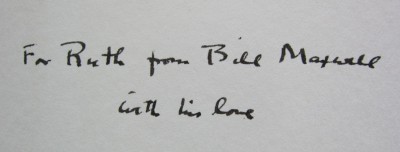 For Ruth from Bill Maxwell
with his love